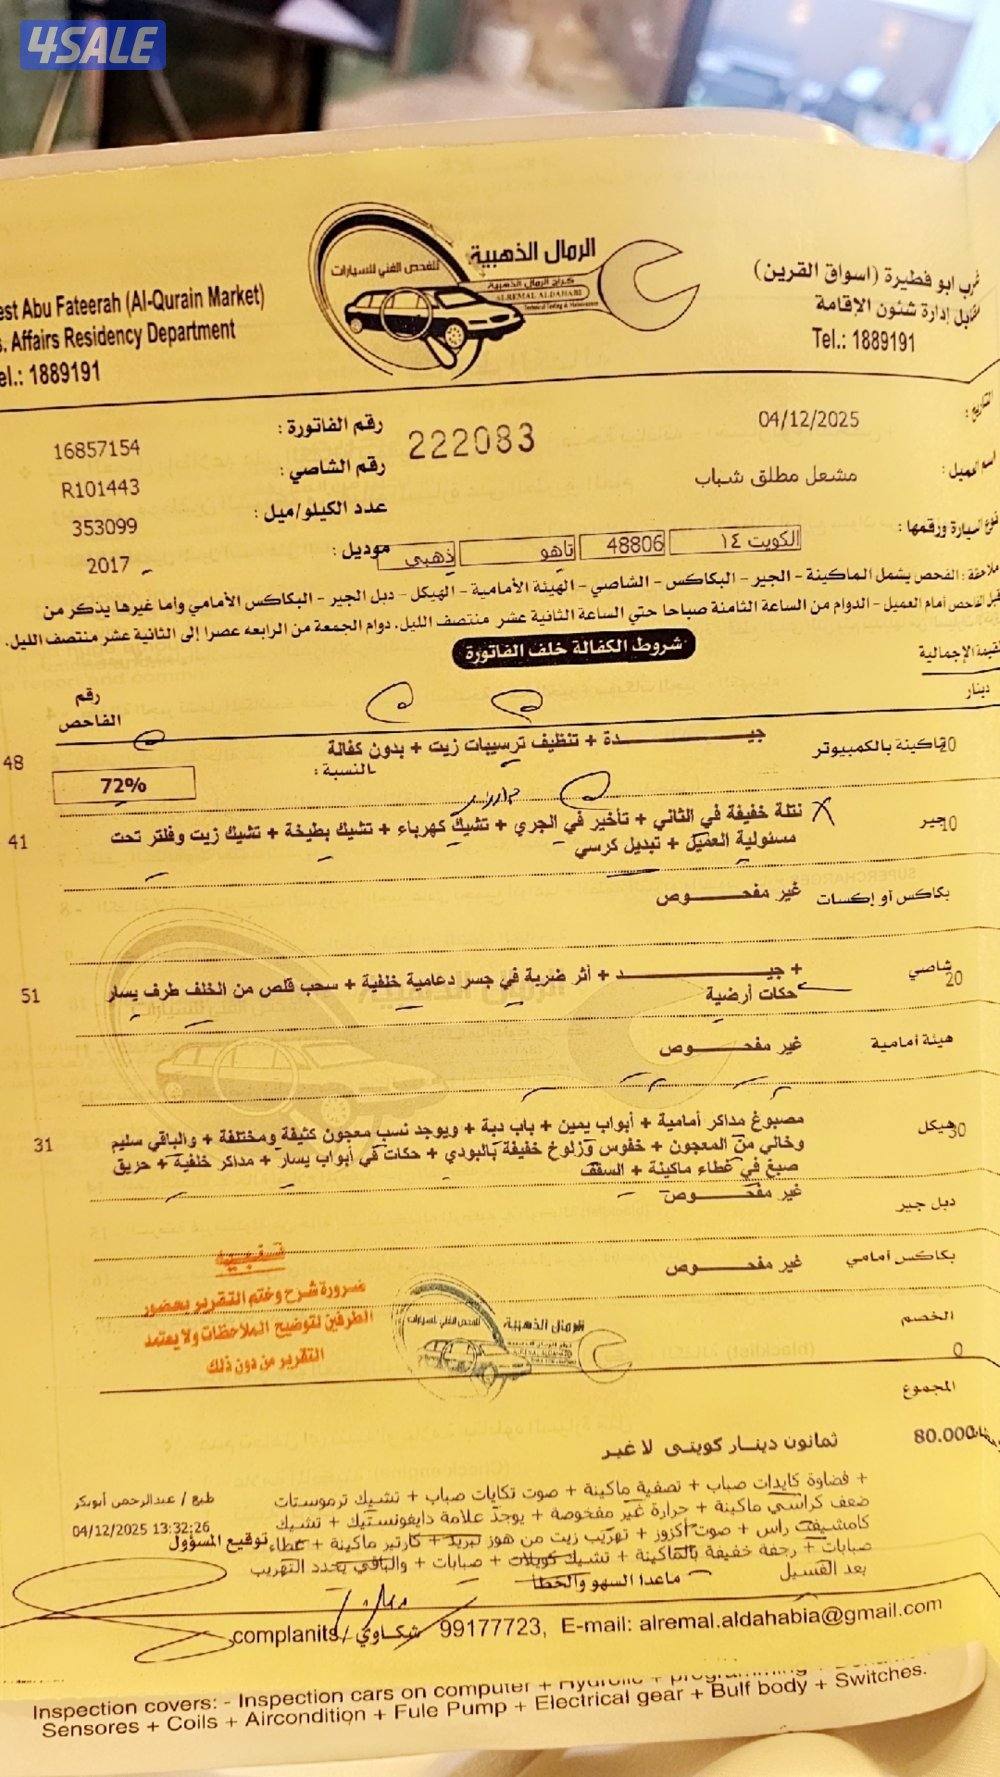 4SALE
الرمال الذهبية
للفحص الفني للسيارات
كراج الرمال الذهبية
ALREMAL ALDAHABI
Technical Testing & Maintenance
est Abu Fateerah (Al-Qurain Market)
s. Affairs Residency Department
el.: 1889191
غرب ابو فطيرة (اسواق القرين)
مقابل إدارة شئون الإقامة
Tel.: 1889191
التاريخ:
04/12/2025
222083
رقم الفاتورة :
16857154
اسم العميل:
مشعل مطلق شباب
رقم الشاصي :
R101443
عدد الكيلو/ميل :
353099
نوع السيارة ورقمها:
الكويت ١٤
48806
تاهو
ذهبي
موديل :
2017
ملاحظة : الفحص يشمل الماكينة - الجير - البكاكس - الشاصي - الهيئة الأمامية - الهيكل - دبل الجير - البكاكس الأمامي وأما غيرها يذكر من
قبل الفاحص أمام العميل - الدوام من الساعة الثامنة صباحا حتي الساعة الثانية عشر منتصف الليل. دوام الجمعة من الرابعه عصرا إلى الثانية عشر منتصف الليل.
شروط الكفالة خلف الفاتورة
القيمة الإجمالية
دينار
رقم
الفاحص
20
ماكينة بالكمبيوتر
جيــــــدة + تنظيف ترسيبات زيت + بدون كفالة
48
النسبة :
72%
10
جير
نتلة خفيفة في الثاني + تأخير في الجري + تشيك كهرباء + تشيك بطيخة + تشيك زيت وفلتر تحت
مسئولية العميل + تبديل كرسي
41
بكاكس أو إكسات
غير مفحــــوص
شاصي
20
+ جيــــــد + أثر ضربة في جسر دعامية خلفية + سحب قلص من الخلف طرف يسار +
حكات أرضية
51
هيئة أمامية
غير مفحــــوص
هيكل
30
مصبوغ مداكر أمامية + أبواب يمين + باب دبة + ويوجد نسب معجون كثيفة ومختلفة + والباقي سليم
وخالي من المعجون + خفوس وزلوخ خفيفة بالبودي + حكات في أبواب يسار + مداكر خلفية + حريق
صبغ في غطاء ماكينة + السقف
31
دبل جير
غير مفحــــوص
بكاكس أمامي
غير مفحــــوص
تنبيه
ضرورة شرح وختم التقرير بحضور
الطرفين لتوضيح الملاحظات ولا يعتمد
التقرير من دون ذلك
الرمال الذهبية
للفحص الفني للسيارات
الخصم
0
المجموع
80.000
ثمانون دينار كويتي لا غير
+ فضاوة كايدات صباب + تصفية ماكينة + صوت تكايات صباب + تشيك ترموستات
ضعف كراسي ماكينة + حرارة غير مفحوصة + يوجد علامة دايفونستيك + تشيك
كامشيفت راس + صوت أكزوز + تهريب زيت من هوز تبريد + كارتير ماكينة + غطاء
صبابات + رجفة خفيفة بالماكينة + تشيك كويلات + صبابات + والباقي يحدد التهريب
بعد الغسيل
ماعدا السهو والخطأ
طبع / عبدالرحمن أبوبكر
04/12/2025 13:32:26
توقيع المسؤول
complanits / شكاوي 99177723, E-mail: alremal.aldahabia@gmail.com
Inspection covers: - Inspection cars on computer + Hydrolic + programming +
Sensores + Coils + Aircondition + Fule Pump + Electrical gear + Bulf body + Switches.